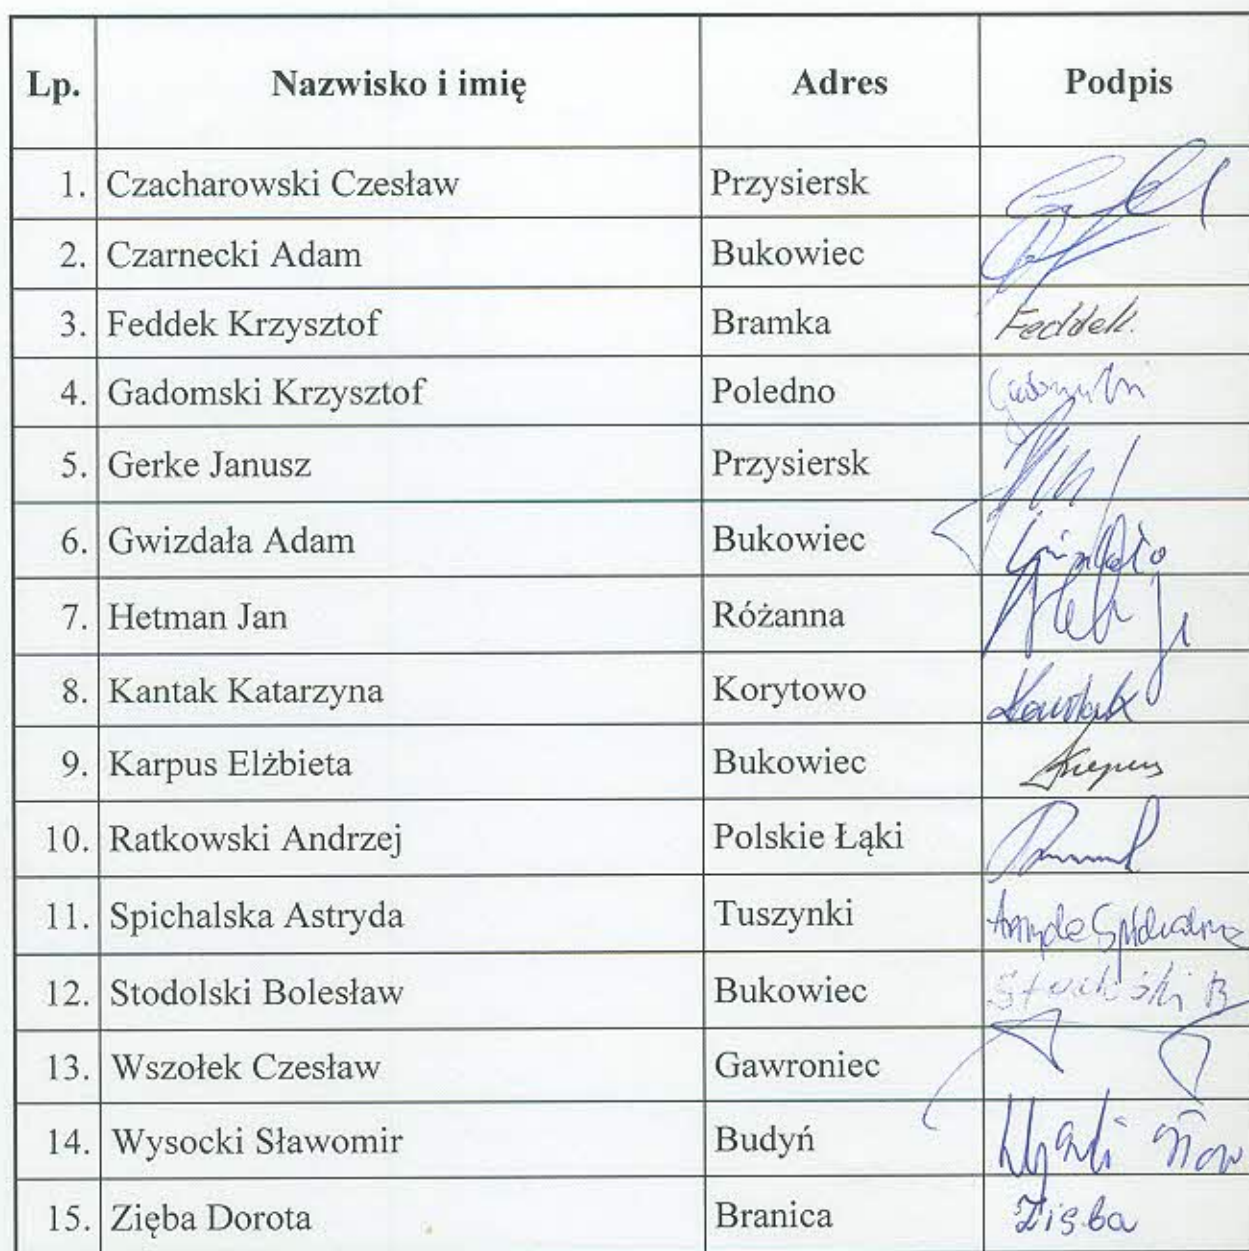 Lp. Nazwisko i imię Adres Podpis
1. Czacharowski Czesław Przysiersk
2. Czarnecki Adam Bukowiec
3. Feddek Krzysztof Bramka Feddek.
4. Gadomski Krzysztof Poledno Gadomski
5. Gerke Janusz Przysiersk
6. Gwizdała Adam Bukowiec Gwizdała
7. Hetman Jan Różanna
8. Kantak Katarzyna Korytowo Kantak
9. Karpus Elżbieta Bukowiec Karpus
10. Ratkowski Andrzej Polskie Łąki
11. Spichalska Astryda Tuszynki Astryda Spichalska
12. Stodolski Bolesław Bukowiec Stodolski B
13. Wszołek Czesław Gawroniec
14. Wysocki Sławomir Budyń
15. Zięba Dorota Branica Zięba